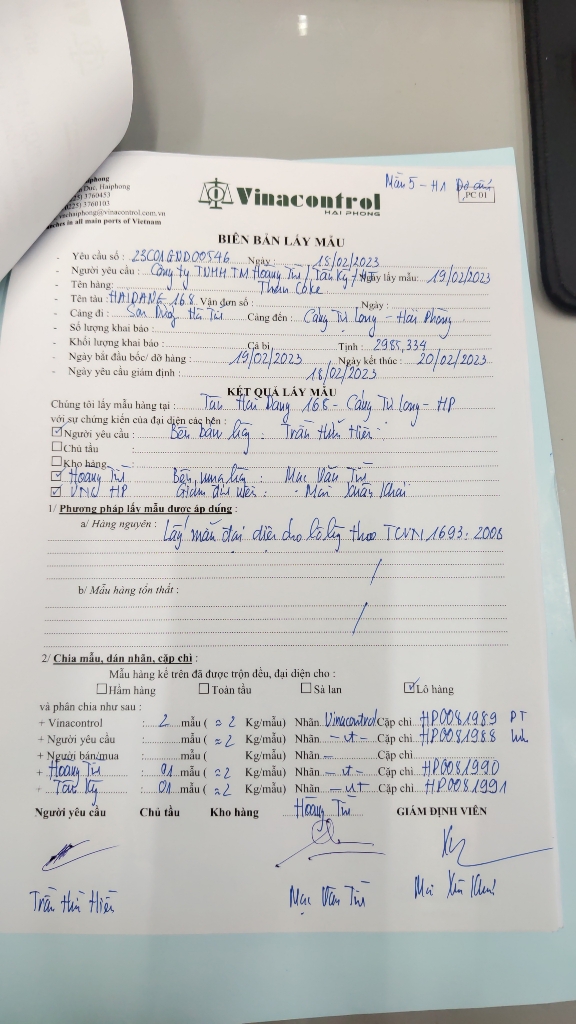 aiphong
Duc, Haiphong
25) 3760453
0225) 3760103
vschaiphong@vinacontrol.com.vn
nches in all main ports of Vietnam
Vinacontrol
HAI PHONG
Mẫu 5 - H1
PC 01
BIÊN BẢN LẤY MẪU
- Yêu cầu số : 23C01GND00546 Ngày : 18/02/2023
- Người yêu cầu : Công ty TNHH TM Hoàng Trí / Tân Kỳ / Ngày lấy mẫu: 19/02/2023
- Tên hàng: Than Coke
- Tên tàu HAIDANG 168 Vận đơn số : Ngày :
- Cảng đi : Sơn Dương Hà Tĩnh Cảng đến : Cảng Tự Long - Hải Phòng
- Số lượng khai báo :
- Khối lượng khai báo : Cả bì Tịnh : 2985,334
- Ngày bắt đầu bốc/ dỡ hàng : 19/02/2023 Ngày kết thúc : 20/02/2023
- Ngày yêu cầu giám định : 18/02/2023
KẾT QUẢ LẤY MẪU
Chúng tôi lấy mẫu hàng tại : Tàu Hai Dang 168 - Cảng Tự Long - HP
với sự chứng kiến của đại diện các bên :
Người yêu cầu : Bên bán lấy : Trần Hữu Hiến
Chủ tầu :
Kho hàng
Hoàng Trí Bên mua lấy : Mạc Văn
VNC HP Giám định viên : Mai Xuân Khải
1/ Phương pháp lấy mẫu được áp dụng :
a/ Hàng nguyên : Lấy mẫu đại diện cho lô lấy theo TCVN 1693: 2008
/
b/ Mẫu hàng tổn thất :
/
2/ Chia mẫu, dán nhãn, cặp chì :
Mẫu hàng kể trên đã được trộn đều, đại diện cho :
Hầm hàng Toàn tầu Sà lan Lô hàng
và phân chia như sau :
+ Vinacontrol : 2 mẫu ( ≈ 2 Kg/mẫu) Nhãn Vinacontrol Cặp chì HP0081989 PT
+ Người yêu cầu : mẫu ( ≈ 2 Kg/mẫu) Nhãn - nt - Cặp chì HP0081988
+ Người bán/mua : mẫu ( Kg/mẫu) Nhãn - Cặp chì
+ Hoàng Trí : 01 mẫu ( ≈ 2 Kg/mẫu) Nhãn - nt - Cặp chì HP0081990
+ Tân Kỳ : 01 mẫu ( ≈ 2 Kg/mẫu) Nhãn - nt - Cặp chì HP0081991
Người yêu cầu Chủ tầu Kho hàng Hoàng Trí GIÁM ĐỊNH VIÊN
Trần Hữu Hiến Mạc Văn Mai Xuân Khải